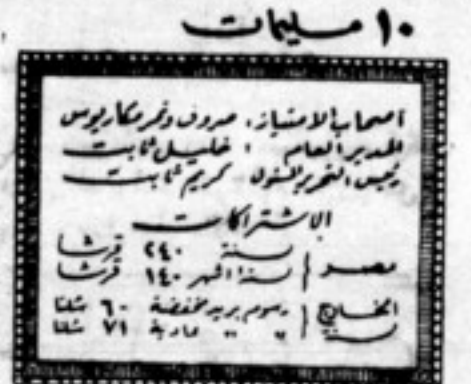 ١٠ مليمات
أصحاب الامتياز: صروف ونمر ومكاريوس
المدير العام : خليل ثابت
رئيس التحرير المسئول كريم ثابت
الاشتراكات
مصر سنة ٢٤٠ قرشا
ستة اشهر ١٤٠ قرشا
الخارج رسوم بريد مخفضة ٦٠ شلنا
سنة " " عادية ٧١ شلنا